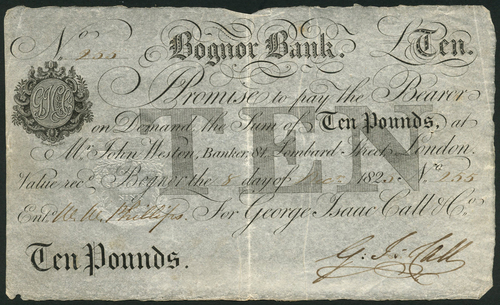 No. 155 Bognor Bank. £Ten.
GICCo
Promise to pay the Bearer
on Demand, the Sum of Ten Pounds, at
Mr. John Weston, Banker, Lombard Street London.
Value recd. Bognor the 5 day of 1825 No. 155
TEN
Entd. W. W. Phillips. For George Isaac Call & Co.
Ten Pounds. G. I. Call